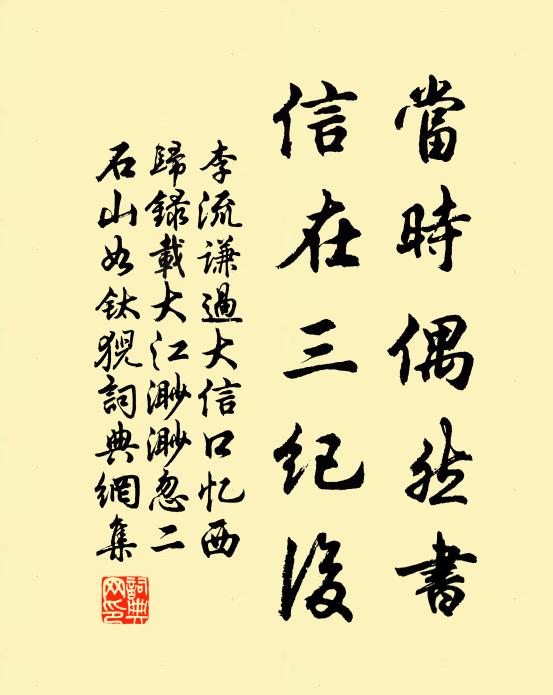 當時偶然書
信在三纪後
李流谦過大信口忆西
歸録載大江渺渺忽二
石山如釱猊詞典網集
詞典網印